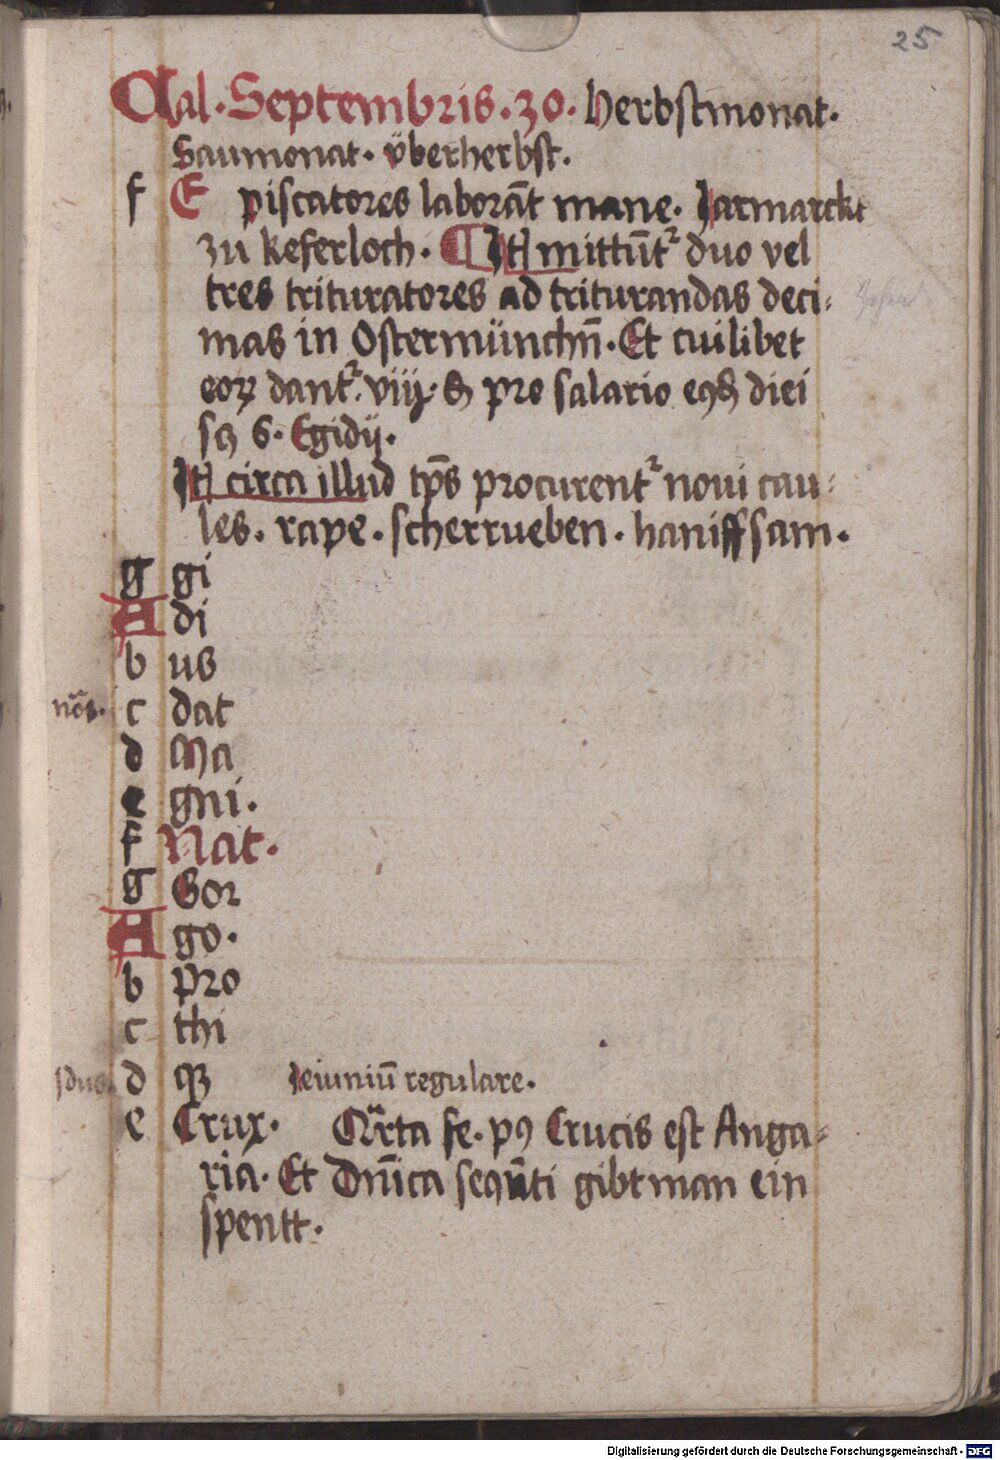 25
Kal. Septembris. 30. Herbstmonat.
Saumonat. v̈berherbst.
f E piscatores laborāt mane. Jarmarckt
zu keferloch. ¶ Itē mittūtʳ duo vel
tres trituratores ad triturandas deci-
mas in Ostermünchn̄. Et cuilibet
eoꝝ dantʳ. viij. ₰ pro salario diei
S. Egidij.
Itē circa illud tp̄s procurentʳ noui cau-
les. rape. scherrueben. haniffsam.
g gi
A di
b us
c dat
d Ma
e gni.
f Nat.
g Gor
A go.
b pro
c thi
d qꝫ Jeiuniū regulare.
e Crux. Qᷓrta fe. pꝯ Crucis est Anga-
ria. Et Dn̄ica seqn̄ti gibt man ein
spentt.
Digitalisierung gefördert durch die Deutsche Forschungsgemeinschaft - DFG